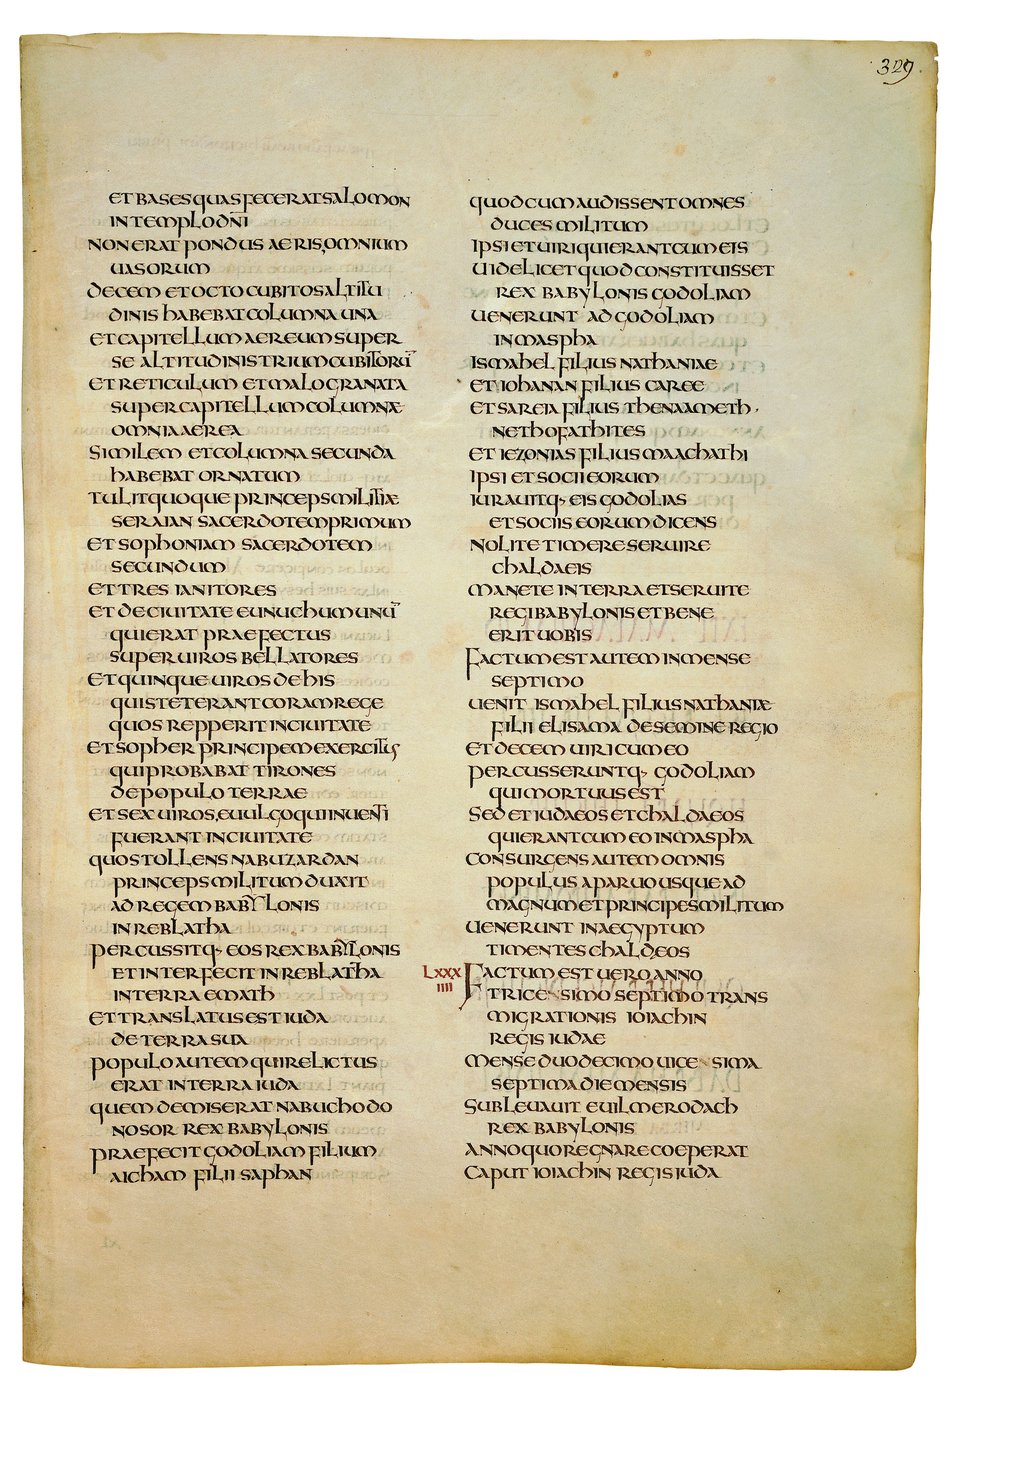 329.
et bases quas fecerat salomon
in templo dn̄i
non erat pondus aeris, omnium
uasorum
decem et octo cubitos altitu
dinis habebat columna una
et capitellum aereum super
se altitudinis trium cubitorū
et reticulum et malogranata
super capitellum columnæ
omnia aerea
similem et columna secunda
habebat ornatum
tulit quoque princeps militiæ
seraian sacerdotem primum
et sophoniam sacerdotem
secundum
et tres ianitores
et de ciuitate eunuchum unū
qui erat praefectus
super uiros bellatores
et quinque uiros de his
qui steterant coram rege
quos repperit in ciuitate
et sopher principem exercitus
qui probabat tirones
de populo terrae
et sex uiros, e uulgo qui inuenti
fuerant in ciuitate
quos tollens nabuzardan
princeps militum duxit
ad regem babylonis
in reblatha
percussitq· eos rex babylonis
et interfecit in reblatha
in terra emath
et translatus est iuda
de terra sua
populo autem qui relictus
erat in terra iuda
quem demiserat nabuchodo
nosor rex babylonis
praefecit godoliam filium
aicham filii saphan
quod cum audissent omnes
duces militum
ipsi et uiri qui erant cum eis
uidelicet quod constituisset
rex babylonis godoliam
uenerunt ad godoliam
in maspha
ismahel filius nathaniae
et iohanan filius caree
et sareia filius thenaameth·
nethofathites
et iezonias filius maachathi
ipsi et socii eorum
iurauitq· eis godolias
et sociis eorum dicens
nolite timere seruire
chaldaeis
manete in terra et seruite
regi babylonis et bene
erit uobis
Factum est autem in mense
septimo
uenit ismahel filius nathaniæ
filii elisama de semine regio
et decem uiri cum eo
percusseruntq· godoliam
qui mortuus est
sed et iudaeos et chaldaeos
qui erant cum eo in maspha
consurgens autem omnis
populus a paruo usque ad
magnum et principes militum
uenerunt in aegyptum
timentes chaldeos
Lxxx Factum est uero anno
IIII trice simo septimo trans
migrationis ioiachin
regis iudae
mense duodecimo uice sima
septima die mensis
subleuauit euilmerodach
rex babylonis
anno quo regnare coeperat
caput ioiachin regis iuda